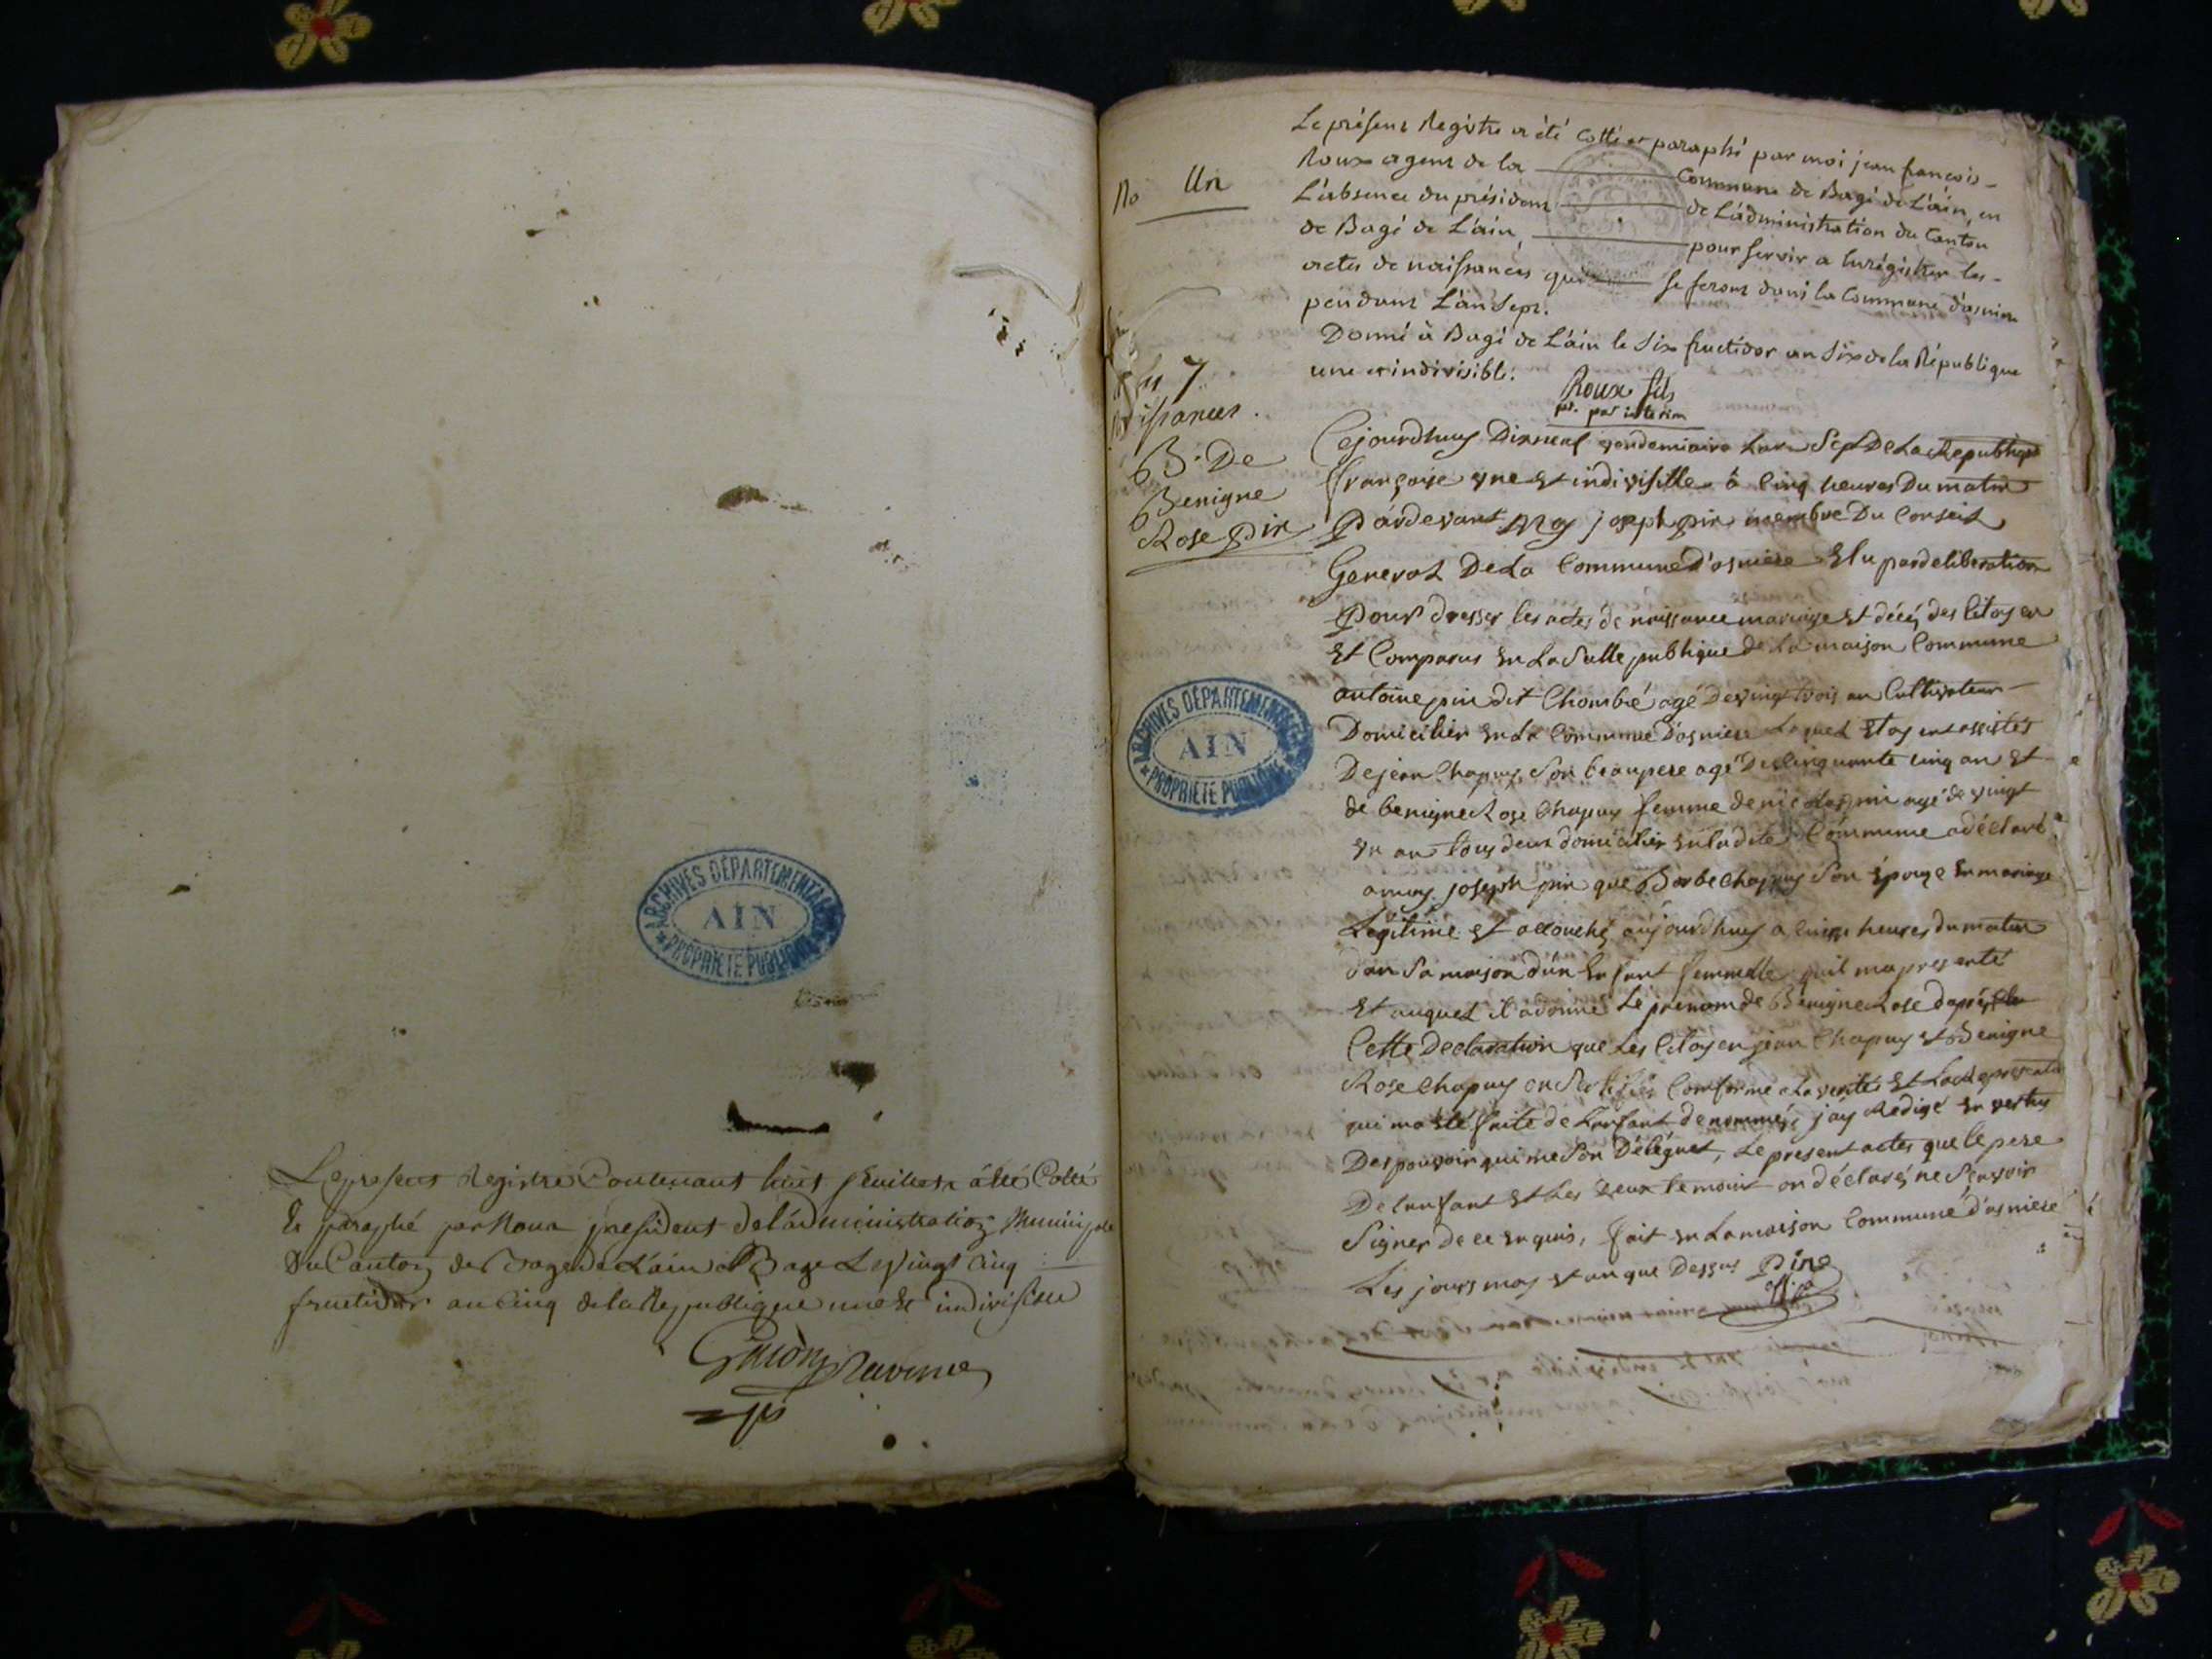 Le présent Registre Contenant huit feuillets a été Cotté
Et paraphé par Nous president de l'administration Municipale
Du Canton de Bagé de L'ain a Bagé Le Vingt Cinq
fructidor an Cinq de la Republique une et indivisible
ARCHIVES DÉPARTEMENTALES
AIN
PROPRIÉTÉ PUBLIQUE
No Un
Le présent Registre a été Cotté et paraphé par moi jean françois
Roux agent de la Commune de Bagé de L'ain, en
L'absence du président de L'administration du Canton
de Bagé de L'ain, pour servir a Enrégistrer les
actes de naissances qui se feront dans la Commune d'asniere
pendant L'an Sept.
Donné à Bagé de L'ain le Six fructidor an Six de la République
une et indivisible.
Roux fils
pt. par interim
7
B. De
Benigne
Rose pin
Cejourdhuy Dixneuf vendemiaire Lan Sept De La Republique
françoise yne Et indivisible à Cinq heures Du matin
Pardevant Moy joseph pin membre Du Conseil
General De La Commune D'asniere Elu par deliberation
Pour dresser les actes de naissance mariage Et décé des Citoyen
Et Comparus En La Salle publique de La maison Commune
antoine pin dit Chombé agé De vingt trois an Cultivateur
Domicilier En La Commune D'asniere Lequel Etoy ent assistés
De jean Chapuy Son beaupere agé De Cinquante cinq an Et
de benigne Rose Chapuy femme de nicolas pin agé de vingt
yn an tous deux domicilier En la dite Commune a déclaré
a moy joseph pin que Barbe Chapuy Son Epouse En mariage
Legitime Et accouché aujourdhuy a Cinq heures du matin
dan Sa maison d'un Enfant femmelle quil ma presenté
Et auquel il a donné Le prenom de Benigne Rose daprés
Cette Declaration que Les Citoyen jean Chapuy et Benigne
Rose Chapuy on Certifiés Conforme a La verité Et La Representa
qui ma Eté faite de Lenfant denommés jay Redigé En vertus
Des pouvoir qui me Son Délégués, Le present actes que le pere
De Lenfant Et Les deux temoint on déclaré, ne Scavoir
Signer De ce Enquis, fait En La maison Commune d'asniere
Les jours moy et an que Dessus Pin
ARCHIVES DÉPARTEMENTALES
AIN
PROPRIÉTÉ PUBLIQUE